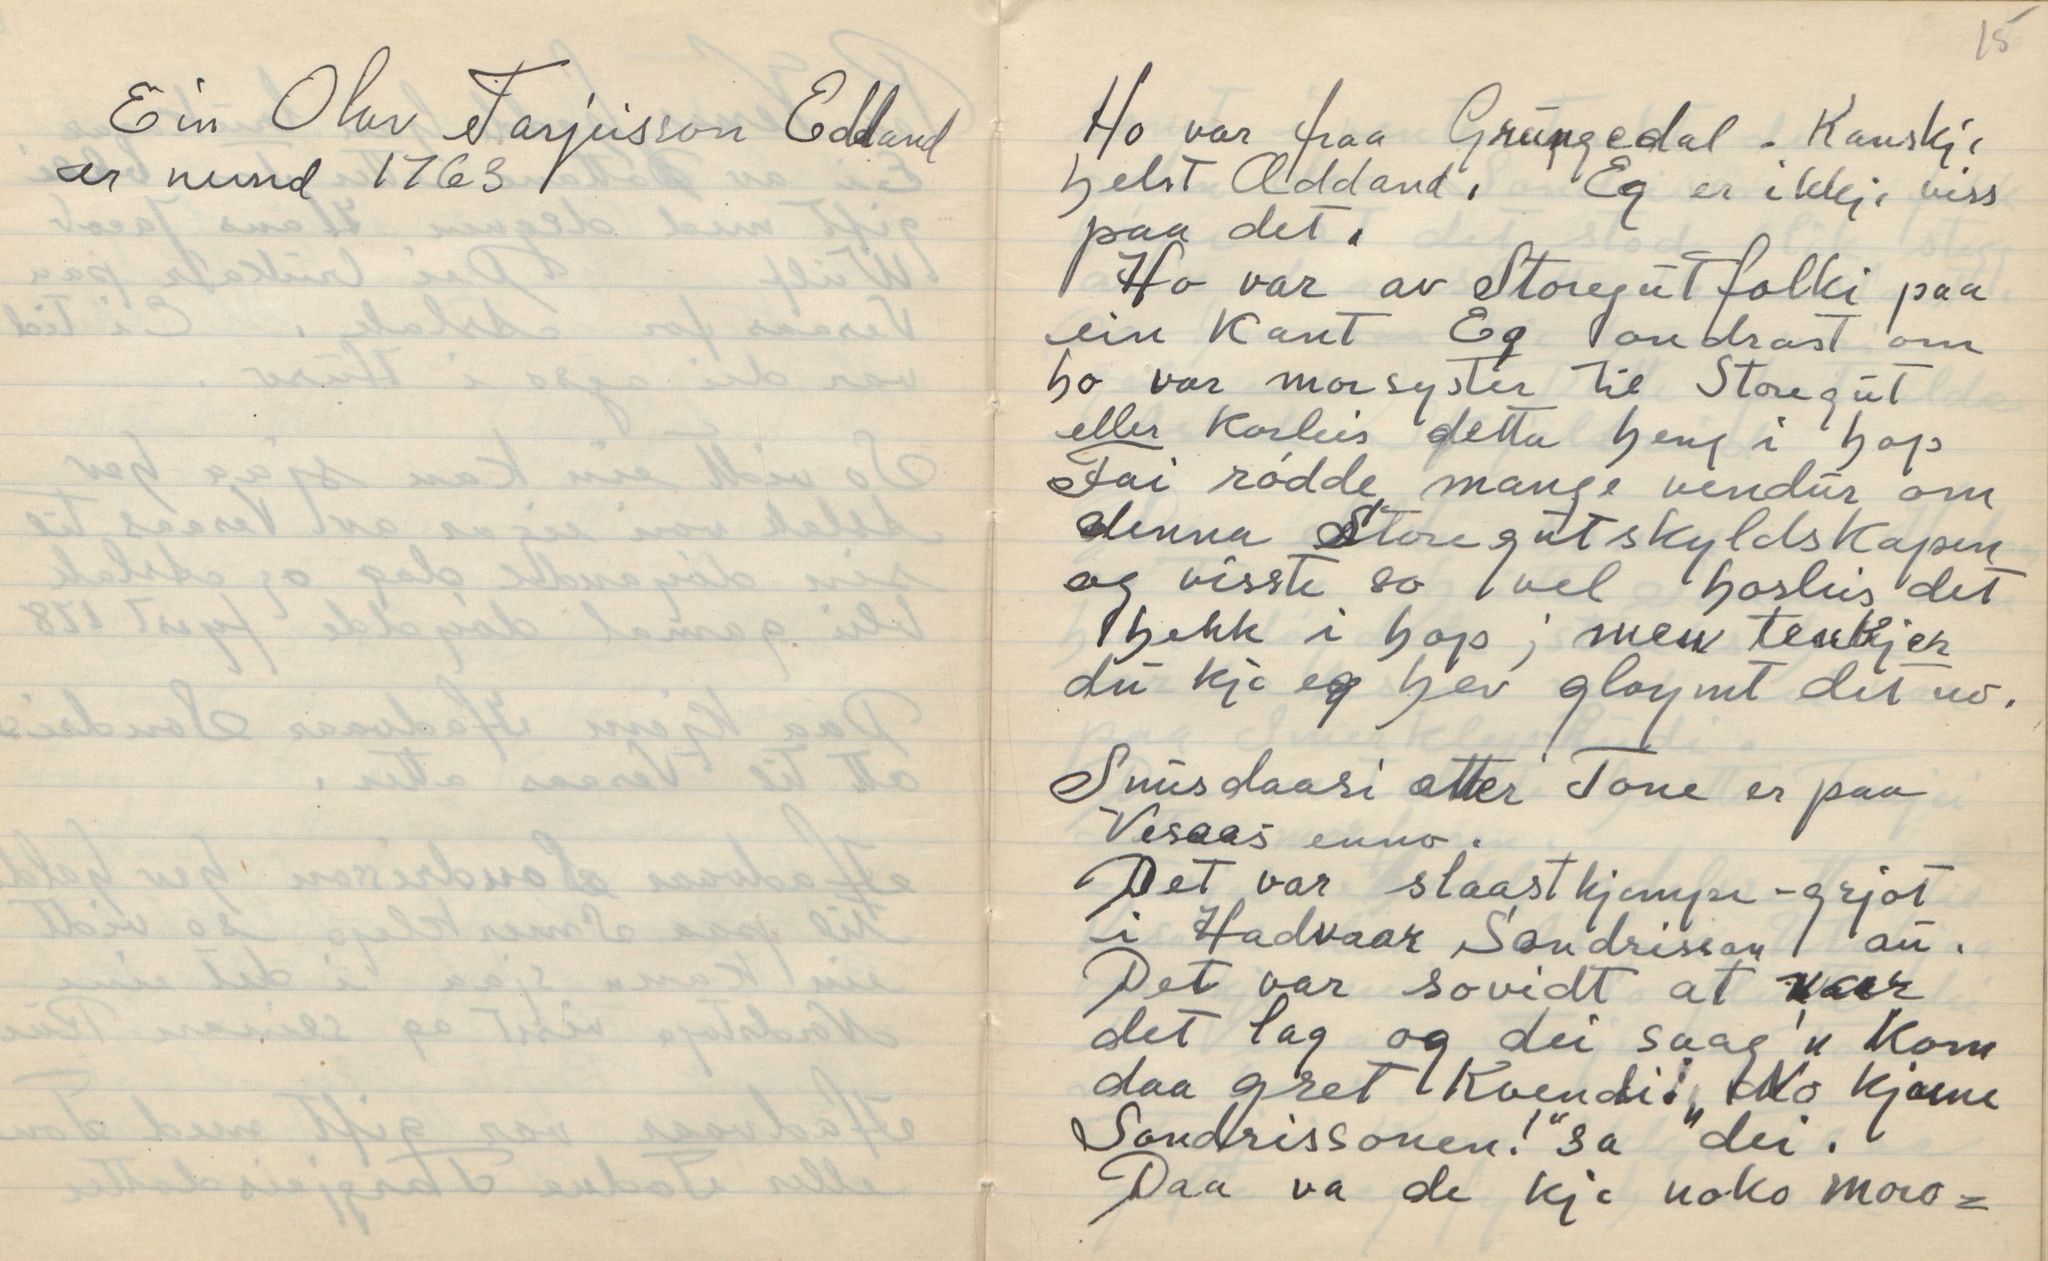 Ein Olav Tarjeisson Edland
er nemnd 1763
15
Ho var fraa Grungedal. Kanskje
helst Øddand. Eg er ikkje viss
paa det.
Ho var av Storegutfolki paa
ein kant Eg ondrast om
ho var morsyster til Storegut
eller korleis detta heng i hop
Fai rödde mange vendur om
denna Storegutskyldskapen
og visste so vel horleis det
hekk i hop; men tenkjer
du kje eg hev gløymt det no.
Snusdaasi etter Tone er paa
Vesaas enno.
Det var slaastkjempe-grjot
i Hadvaar Sondrisson au.
Det var sovidt at naar
det lag og dei saag'n kom
daa gret kvendi: "No kjeme
Sondrissonen!" sa dei.
Daa va de kje noko moro=